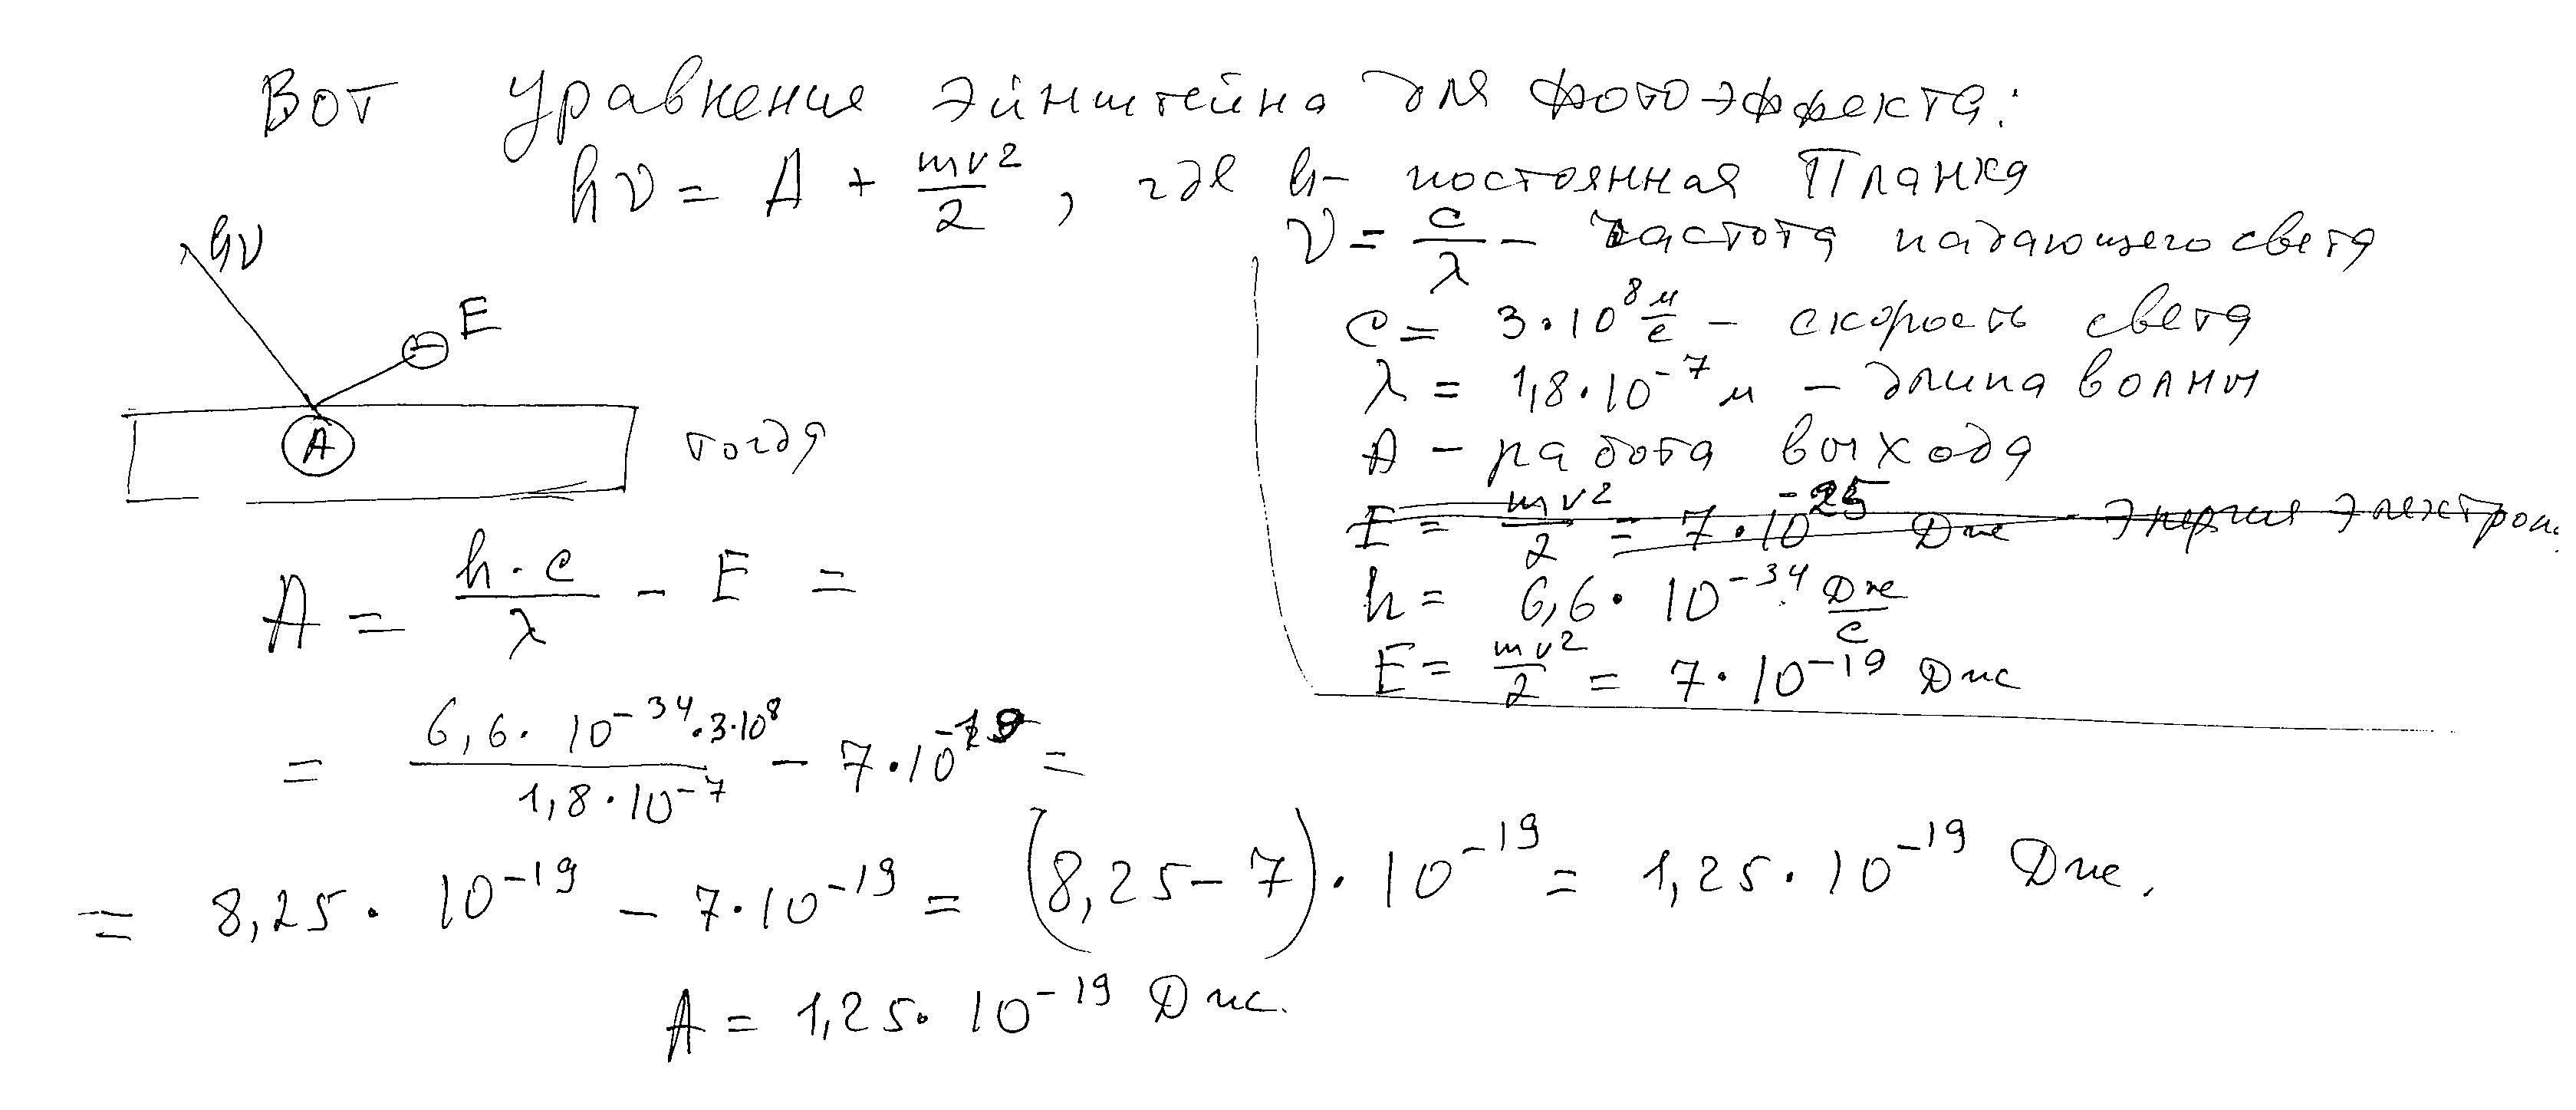 Вот уравнение Эйнштейна для фотоэффекта:
hν = A + mv²/2, где h - постоянная Планка
ν = c/λ - частота падающего света
hν
E
A
c = 3·10⁸ м/с - скорость света
λ = 1,8·10⁻⁷ м - длина волны
A - работа выхода
E = mv²/2 = 7·10⁻²⁵ Дж - энергия электрон
h = 6,6·10⁻³⁴ Дж/с
E = mv²/2 = 7·10⁻¹⁹ Дж
тогда
A = h·c/λ - E =
= 6,6·10⁻³⁴·3·10⁸/1,8·10⁻⁷ - 7·10⁻¹⁹ =
= 8,25·10⁻¹⁹ - 7·10⁻¹⁹ = (8,25-7)·10⁻¹⁹ = 1,25·10⁻¹⁹ Дж.
A = 1,25·10⁻¹⁹ Дж.